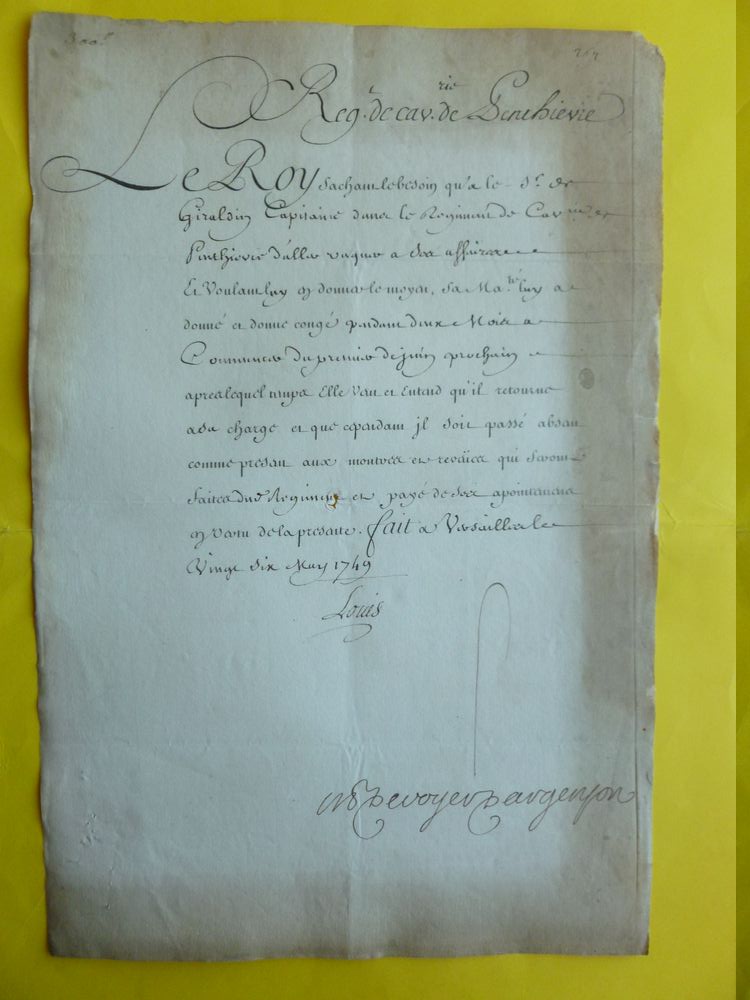 300#
Reg.t de cav.rie de Penthievre
Le Roy sachant le besoin qu'a le S.r de
Giraldin Capitaine dans le Regiment de Cav.rie de
Penthievre d'aller vaquer a ses affaires
Et Voulant luy en donner le moyen, Sa Ma.té luy a
donné et donne congé pendant deux Mois a
Commencer du premier de juin prochain
apres lequel temps Elle Veut et Entend qu'il retourne
a sa charge et que cependant jl soit passé absent
comme present aux montres et revües qui seront
faites dud. Regiment et payé de ses apointemens
en vertu de la presente. fait a Versailles le
Vingt six May 1749
Louis
De voyer D'argenson